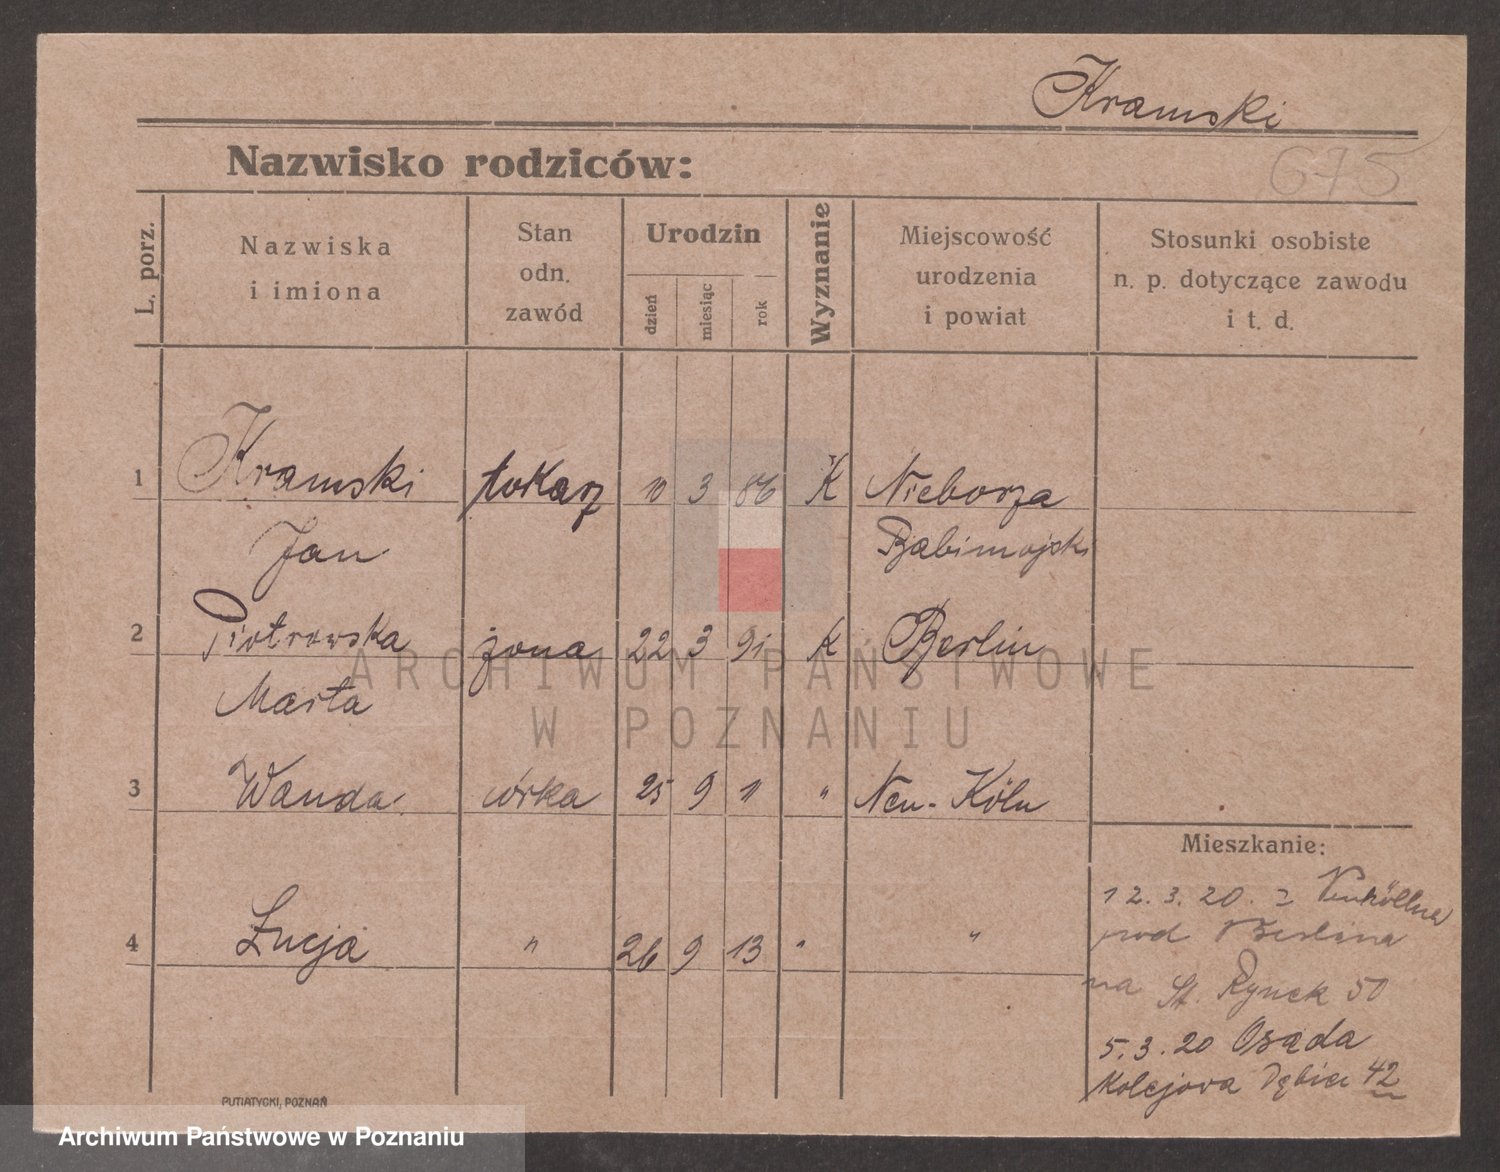 Kramski
Nazwisko rodziców:
675
L. porz.
Nazwiska
i imiona
Stan
odn.
zawód
Urodzin
dzień
miesiąc
rok
Wyznanie
Miejscowość
urodzenia
i powiat
Stosunki osobiste
n. p. dotyczące zawodu
i t. d.
1 Kramski tokarz 10 3 86 K Nieborza
Jan Babimojski
2 Piotrowska żona 22 3 91 K Berlin
Marta
3 Wanda córka 25 9 11 " Neu-Köln
4 Łucja " 26 9 13 " "
Mieszkanie:
12.3.20. z Neuköllna
pod Berlina
na St. Rynek 50
5.3.20 Osada
Kolejowa Dębiec 42
PUTIATYCKI, POZNAŃ
ARCHIWUM PAŃSTWOWE
W POZNANIU
Archiwum Państwowe w Poznaniu